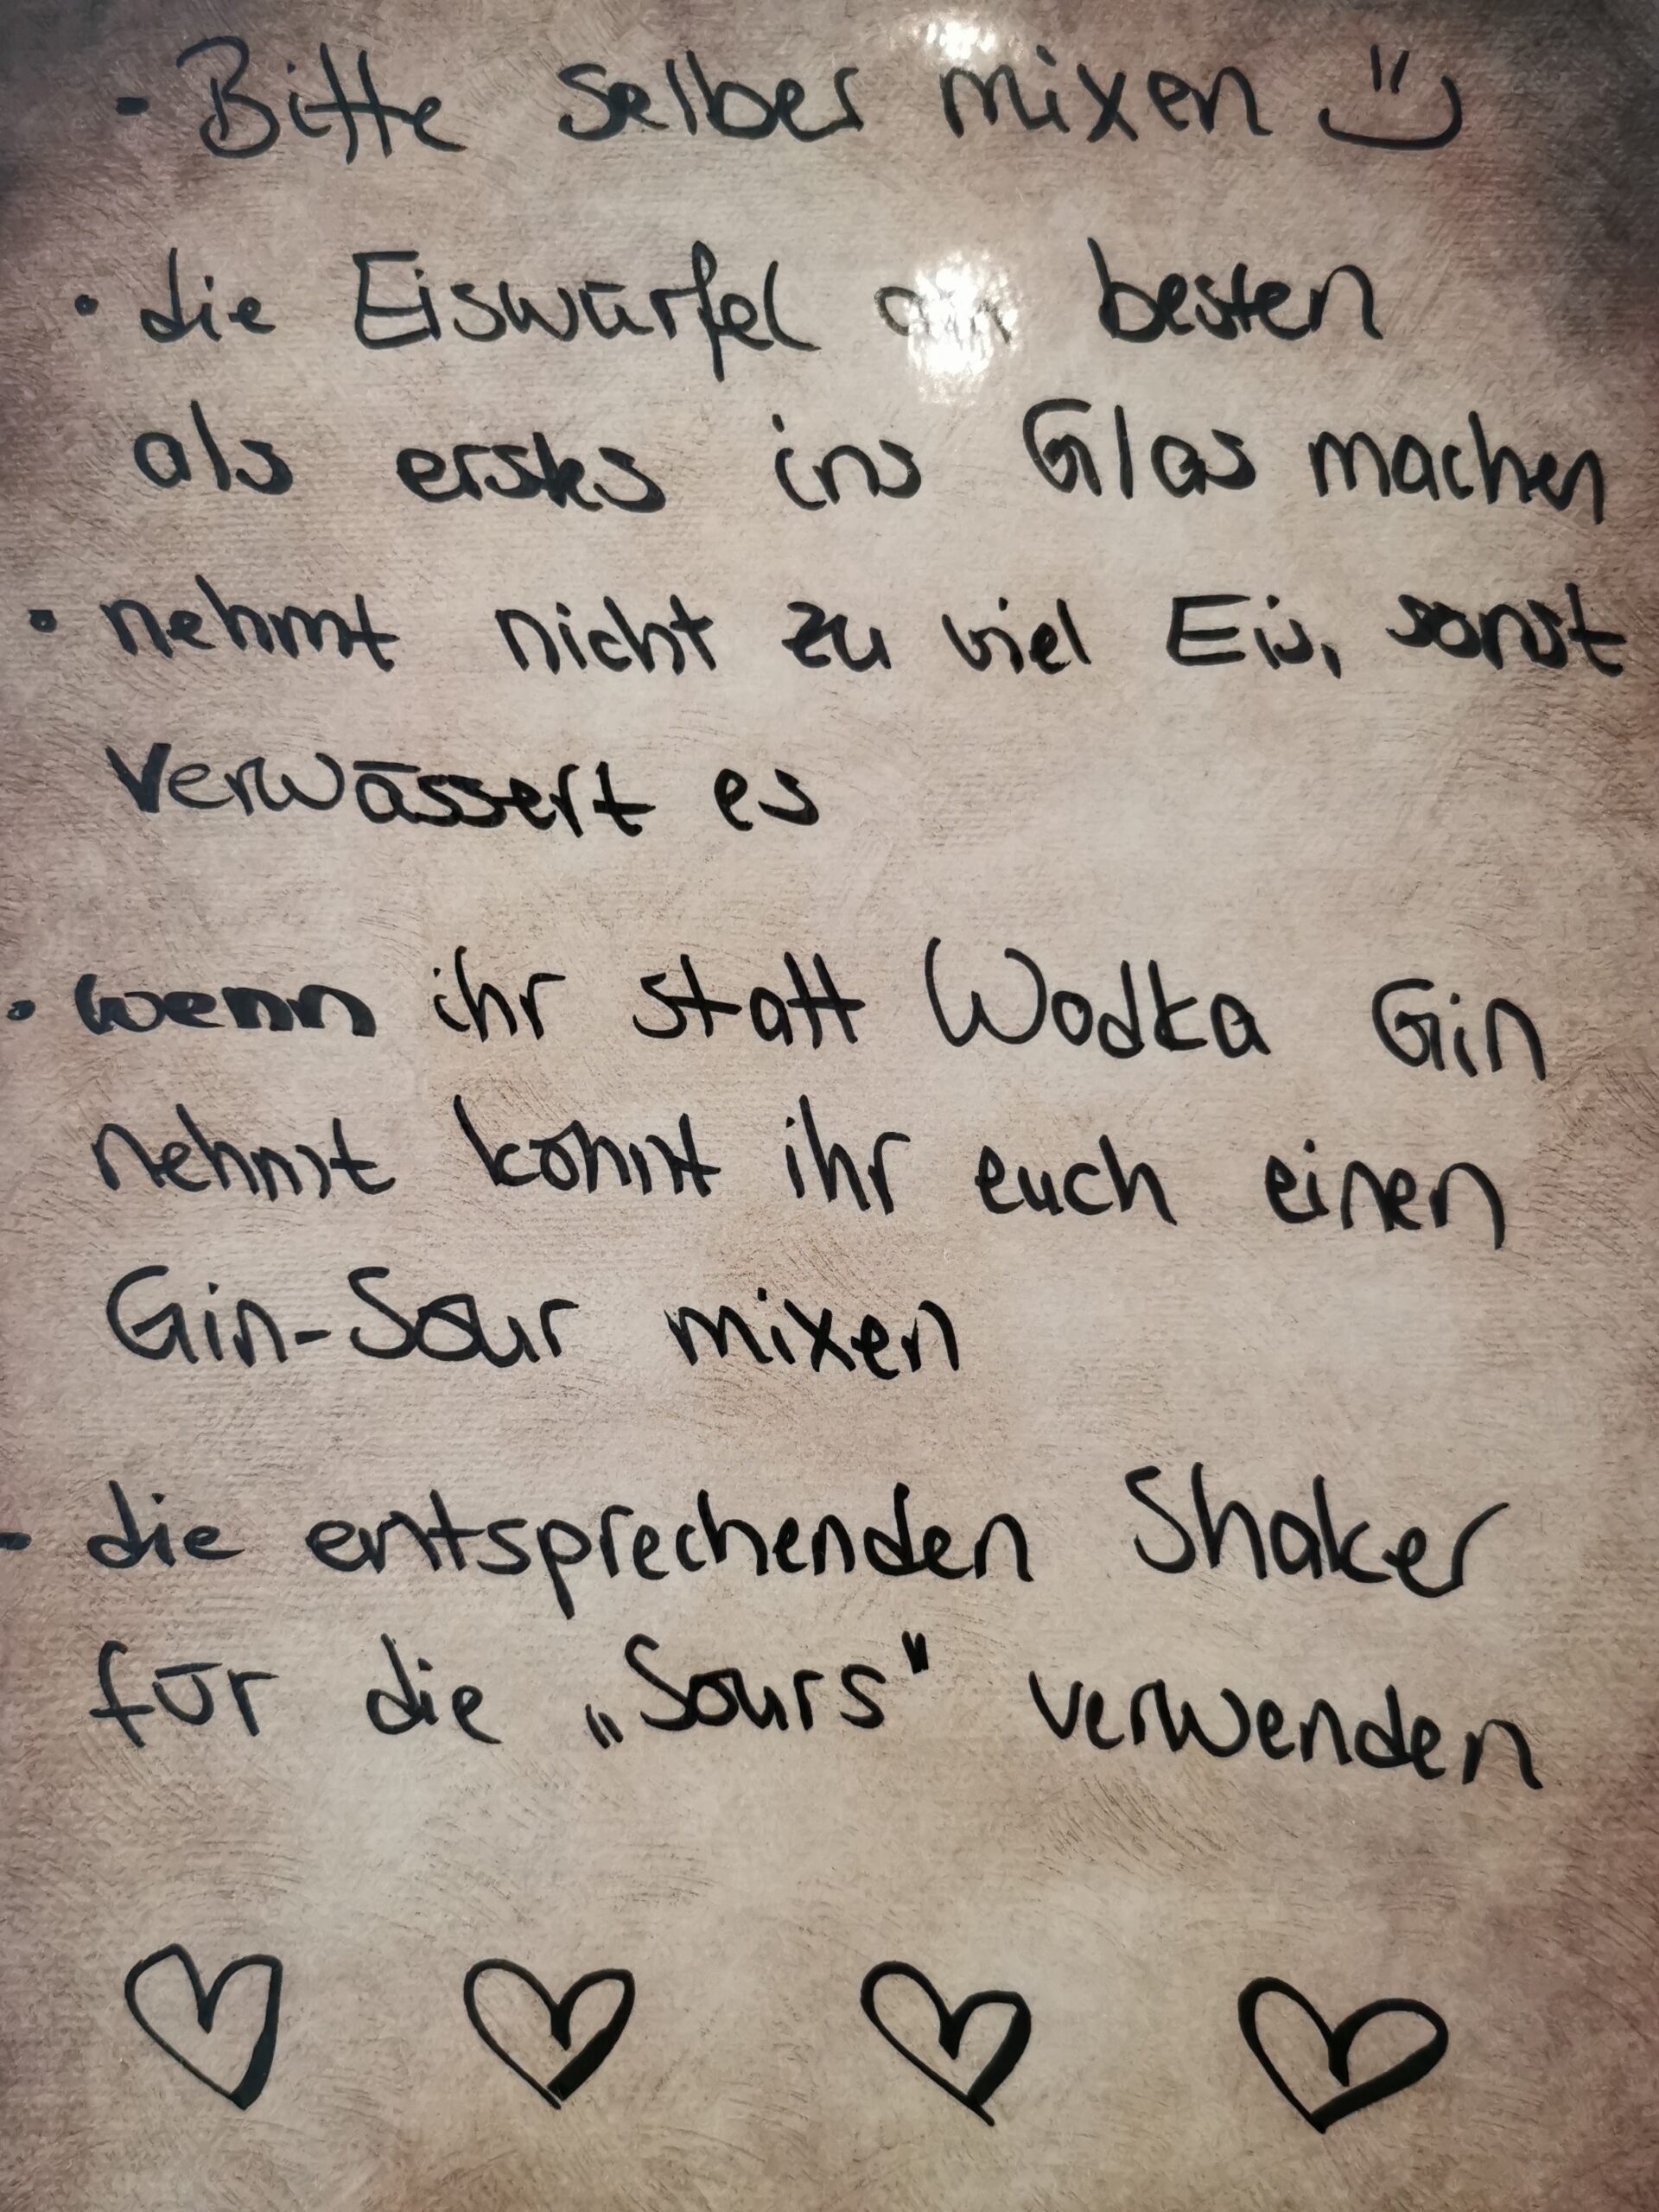 - Bitte selber mixen
• die Eiswürfel am besten
als erstes ins Glas machen
• nehmt nicht zu viel Eis, sonst
verwässert es
• wenn ihr statt Wodka Gin
nehmt könnt ihr euch einen
Gin-Sour mixen
- die entsprechenden Shaker
für die „Sours" verwenden